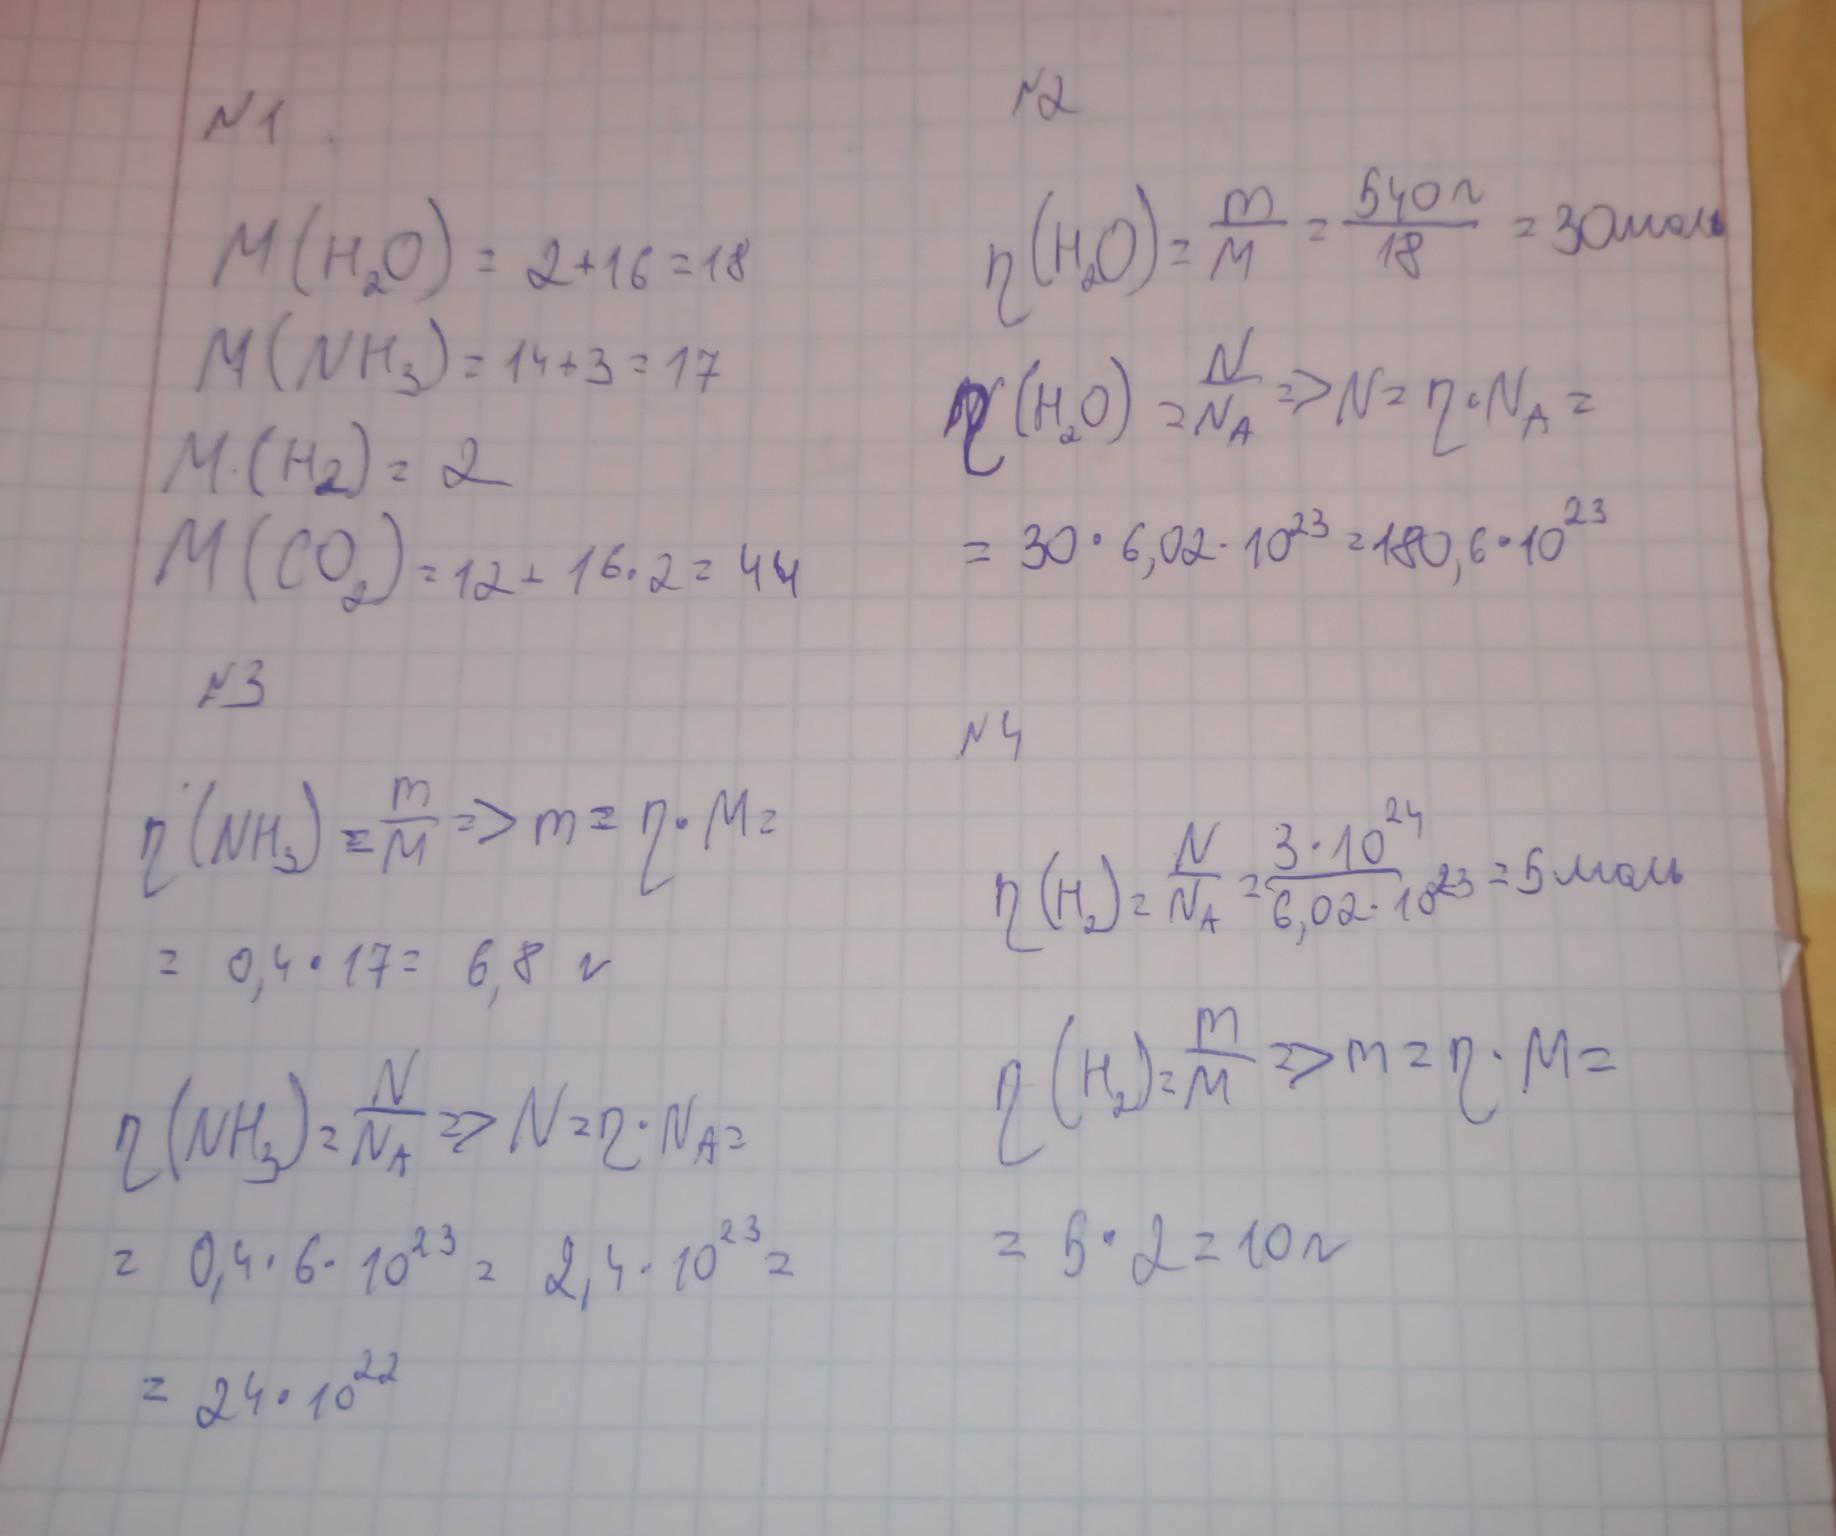 N1
M(H₂O) = 2+16=18
M(NH₃)=14+3=17
M.(H₂)= 2
M(CO₂)=12+16·2=44
N2
η(H₂O)= m/M = 540г/18 = 30моль
η(H₂O) = N/N_A => N= η·N_A =
= 30·6,02·10²³=180,6·10²³
N3
η(NH₃)= m/M => m= η·M=
= 0,4·17= 6,8 г
η(NH₃)= N/N_A => N=η·N_A=
= 0,4·6·10²³= 2,4·10²³=
= 24·10²²
N4
η(H₂)= N/N_A = 3·10²⁴/6,02·10²³ =5моль
η(H₂)= m/M => m=η·M=
= 5·2=10г